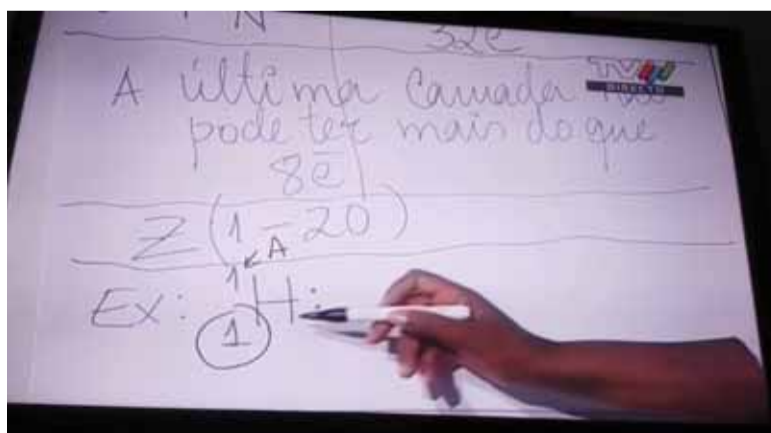 N 32e
TV
DIRECTO
A última camada não
pode ter mais do que
8e̅
Z(1-20)
A
1
Ex: H:
1